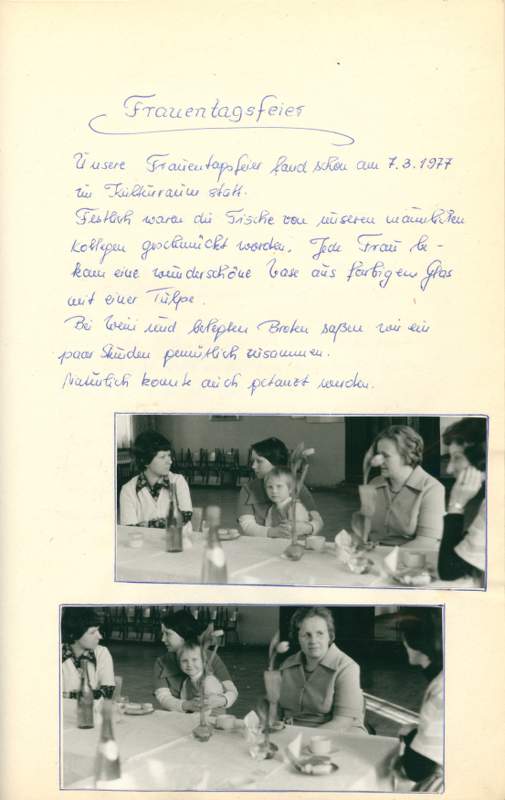 Frauentagsfeier
Unsere Frauentagsfeier fand schon am 7.3.1977
im Kulturraum statt.
Festlich waren die Tische von unseren männlichen
Kollegen geschmückt worden. Jede Frau be-
kam eine wunderschöne Vase aus farbigem Glas
mit einer Tulpe.
Bei Wein und belegten Broten saßen wir ein
paar Stunden gemütlich zusammen.
Natürlich konnte auch getanzt werden.